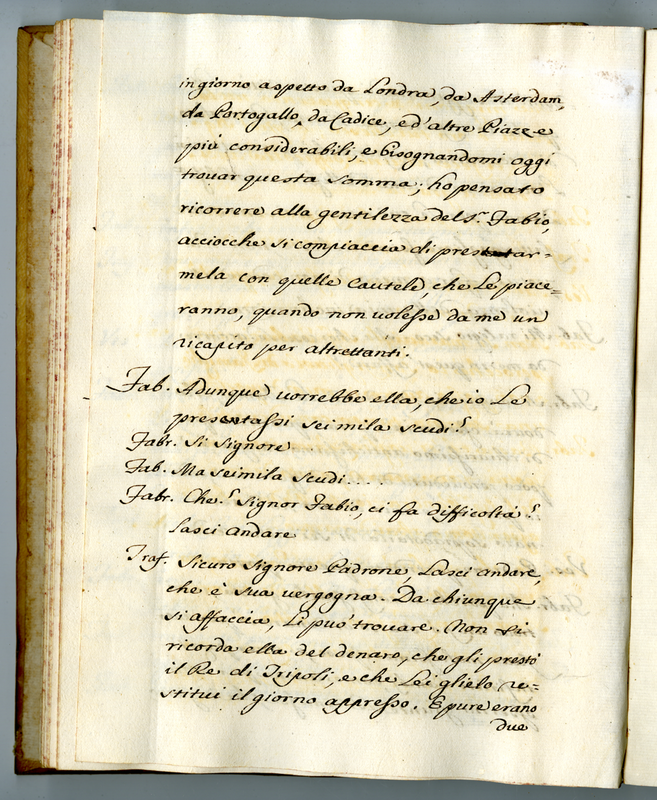 in giorno aspetto da Londra, da Asterdam,
da Portogallo, da Cadice, e d'altre Piazze
più considerabili, e bisognandomi oggi
trovar questa somma; ho pensato
ricorrere alla gentilezza del S.r Fabio,
acciocche si compiaccia di prestar=
mela con quelle Cautele, che Le piace=
ranno, quando non volesse da me un
ricapito per altrettanti.
Fab. Adunque vorrebbe ella, che io Le
presentassi seimila scudi?
Fabr. Si Signore
Fab. Ma seimila scudi....
Fabr. Che? Signor Fabio, ci fa difficoltà?
Lasci andare
Traf. Sicuro Signore Padrone, Lasci andare,
che è sua vergogna. Da chiunque
si affaccia, Li può trovare. Non si
ricorda ella del denaro, che gli prestò
il Re di Tripoli, e che Lei glielo re=
stitui il giorno appresso. E pure erano
due